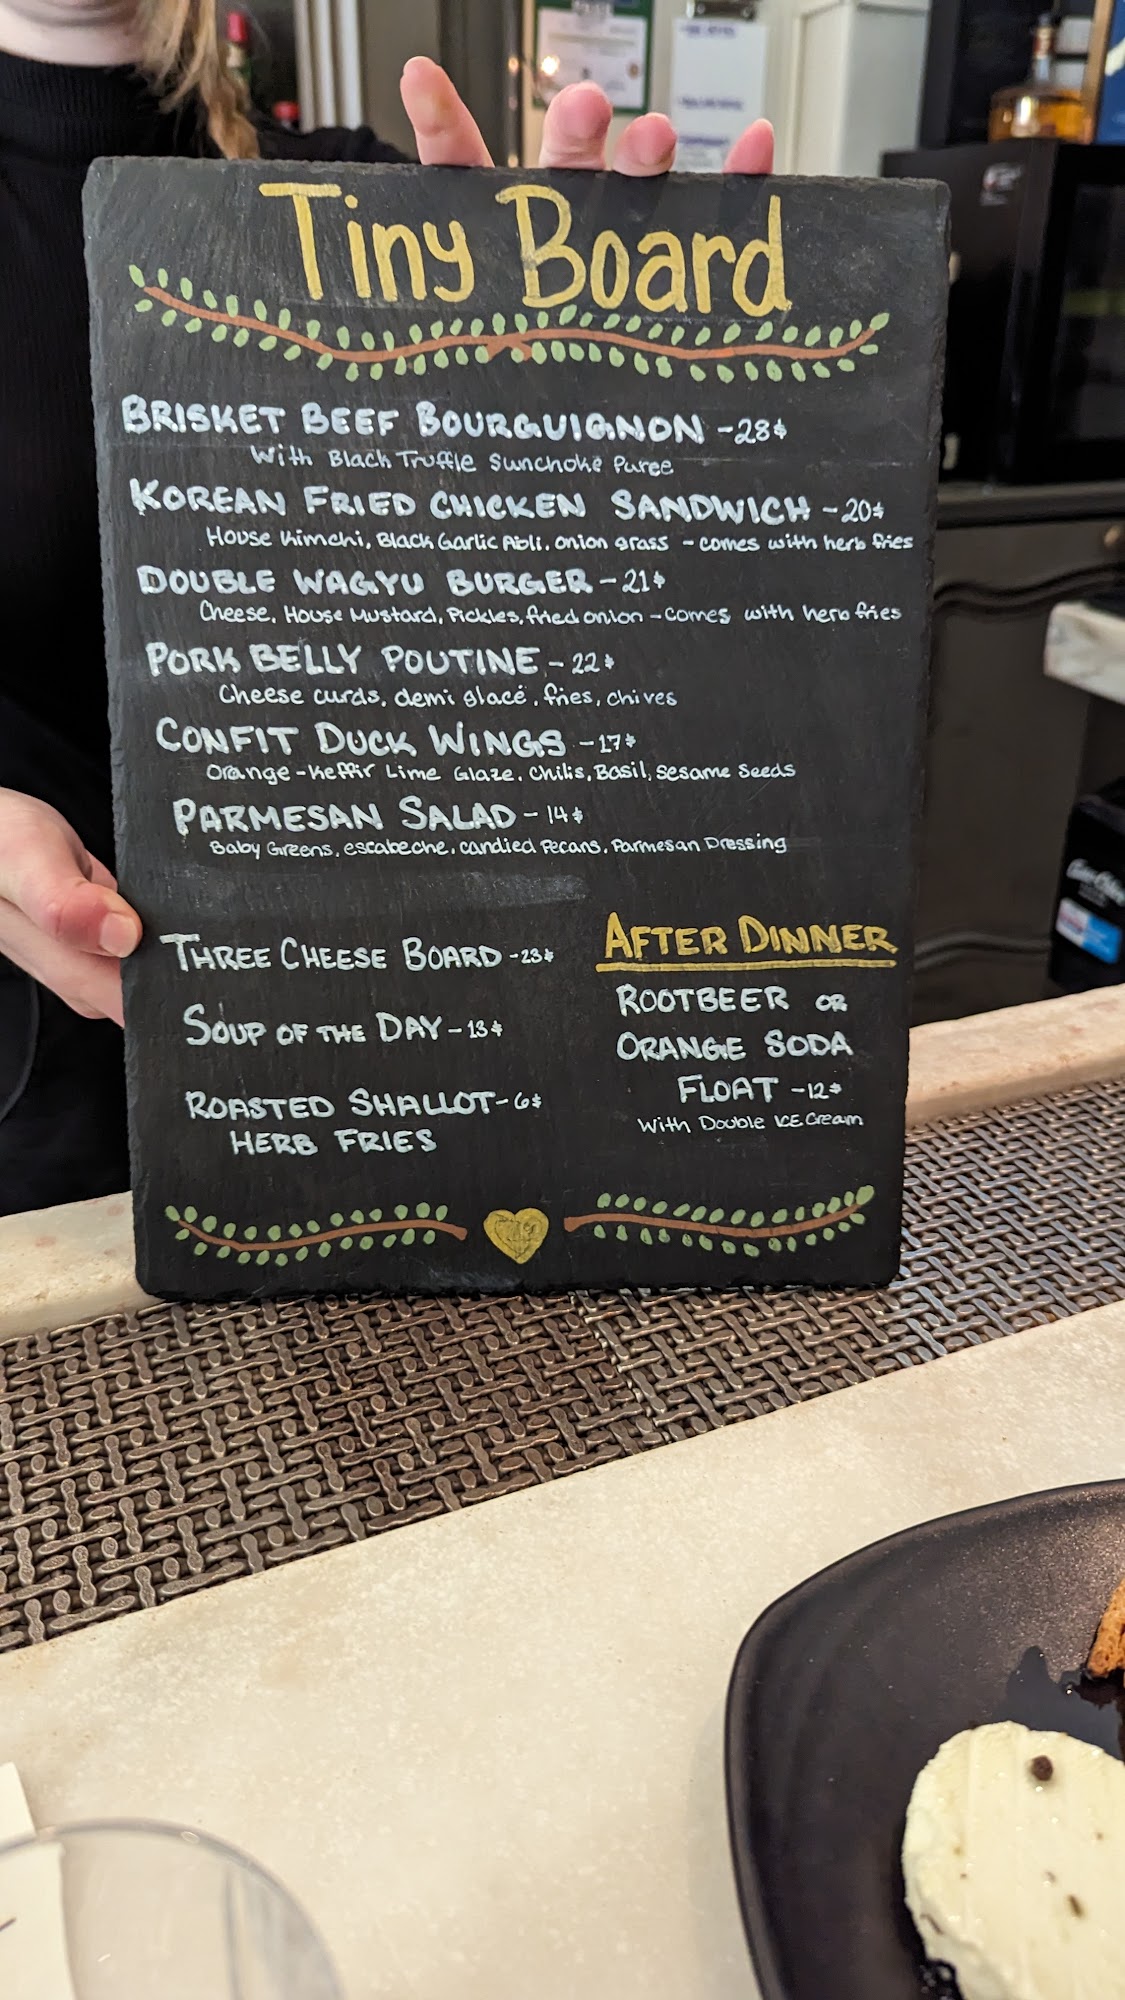 Tiny Board
BRISKET BEEF BOURGUIGNON -28$
With Black Truffle Sunchoke Puree
KOREAN FRIED CHICKEN SANDWICH -20$
House Kimchi, Black Garlic Aioli, onion grass - comes with herb fries
DOUBLE WAGYU BURGER -21$
Cheese, House Mustard, Pickles, fried onion - comes with herb fries
PORK BELLY POUTINE -22$
Cheese curds, demi glacé, fries, chives
CONFIT DUCK WINGS -17$
Orange-Keffir Lime Glaze, Chilis, Basil, Sesame Seeds
PARMESAN SALAD -14$
Baby Greens, escabeche, candied Pecans, Parmesan Dressing
THREE CHEESE BOARD -23$
SOUP OF THE DAY -13$
ROASTED SHALLOT -6$
HERB FRIES
AFTER DINNER
ROOTBEER OR
ORANGE SODA
FLOAT -12$
With Double ICE Cream